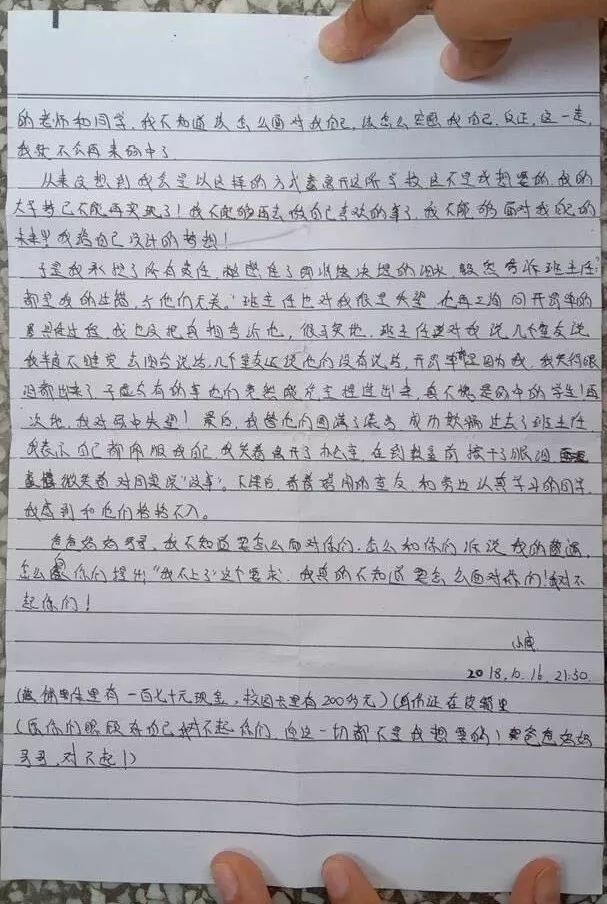 的老师和同学,我不知道该怎么面对我自己,该怎么安慰我自己,反正,这一走,
我就不会再来 中了
从来没想到我会是以这样的方式离开这所学校,这不是我想要的,我的
大学梦已不能再实现了!我不能够再去做自己喜欢的事了,我不能够面对我自己的
未来 我给自己设计的梦想!
于是我承担了所有责任, 住了 的泪水,毅然告诉班主任:
都是我的过错,与他们无关。"班主任也对我很是失望,也再三询问
具体过程,我也没把真相告诉他,很可笑地,班主任还对我说,几个室友说
我半夜不睡觉去阳台说话,几个室友还说他们没有说话, 是因为我,我笑得眼
泪都出来了 子虚乌有的事他们竟然 出来,真不愧是 中的学生!再
次地,我对 中失望! 最后,我替他们圆满了谎言 成功欺骗过去了班主任,
我表示自己都佩服我自己,我笑着离开了办公室,在到教室前擦干了眼泪
微笑着对同桌说"没事"。下课后,看着 的室友,和旁边认真学习的同学,
我感到和他们格格不入。
爸爸妈妈哥哥,我不知道要怎么面对你们,怎么和你们诉说我的 ,
怎么 你们提出"我不上了"这个要求,我真的不知道要怎么面对你们!对不
起你们!
小
2018.10.16 21:50
( 里有一百七十元现金,校园卡里有200多元)(身份证在皮箱里
( 你们 自己 对不起你们,但这一切都不是我想要的)爸爸妈妈
哥哥,对不起!)